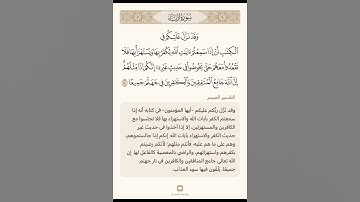 سورة النساء
وقد نزل عليكم في
الكتب أن إذا سمعتم ءايت الله يكفر بها ويستهزأ بها فلا
تقعدوا معهم حتى يخوضوا في حديث غيره إنكم إذا مثلهم
إن الله جامع المنفقين والكفرين في جهنم جميعا
التفسير الميسر
وقد نزّل ربكم عليكم -أيها المؤمنون- في كتابه أنه إذا
سمعتم الكفر بآيات الله والاستهزاء بها فلا تجلسوا مع
الكافرين والمستهزئين، إلا إذا أخذوا في حديث غير
حديث الكفر والاستهزاء بآيات الله. إنكم إذا جالستموهم،
وهم على ما هم عليه، فأنتم مثلهم؛ لأنكم رضيتم
بكفرهم واستهزائهم، والراضي بالمعصية كالفاعل لها. إن
الله تعالى جامع المنافقين والكافرين في نار جهنم
جميعًا، يلْقَون فيها سوء العذاب.